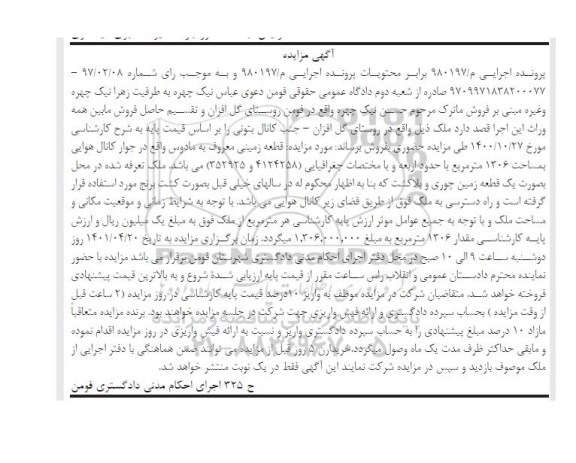 آگهی مزایده
پرونده اجرایی م/۹۸۰۱۹۷ برابر محتویات پرونده اجرایی م/۹۸۰۱۹۷ و به موجب رای شماره ۹۷/۰۲/۰۸ –
۹۷۰۹۹۷۱۸۳۸۲۰۰۰۷۷ صادره از شعبه دوم دادگاه عمومی حقوقی فومن دعوی عباس نیک چهره به طرفیت زهرا نیک چهره
وغیره مبنی بر فروش ماترک مرحوم حسین نیک چهره واقع در فومن روستای گل افزان و تقسیم حاصل فروش مابین همه
وراث این اجرا قصد دارد ملک ذیل واقع در روستای گل افزان – جنب کانال بتونی را بر اساس قیمت پایه به شرح کارشناسی
مورخ ۱۴۰۰/۱۰/۲۷ طی مزایده حضوری بفروش برساند: مورد مزایده: قطعه زمینی معروف به مادوس واقع در جوار کانال هوایی
بمساحت ۱۳۰۶ مترمربع با حدود اربعه و با مختصات جغرافیایی (۴۱۲۴۲۵۸ و ۳۵۲۹۲۵) می باشد. ملک تعرفه شده در محل
بصورت یک قطعه زمین چوری و بلاکشت که بنا به اظهار محکوم له در سالهای خیلی قبل بصورت کشت برنج مورد استفاده قرار
گرفته است و راه دسترسی به ملک فوق از طریق فضای زیر کانال هوایی می باشد. با توجه به شرایط زمانی و موقعیت مکانی و
مساحت ملک و با توجه به جمیع عوامل موثر ارزش پایه کارشناسی هر مترمربع از ملک فوق به مبلغ یک میلیون ریال و ارزش
پایه کارشناسی مقدار ۱۳۰۶ مترمربع به مبلغ ۱,۳۰۶,۰۰۰,۰۰۰ میگردد. زمان برگزاری مزایده به تاریخ ۱۴۰۱/۰۴/۲۰ روز
دوشنبه ساعت ۹ الی ۱۰ صبح در محل دفتر اجرای احکام مدنی دادگستری شهرستان فومن برقرار می باشد مزایده با حضور
نماینده محترم دادستان عمومی و انقلاب راس ساعت مقرر از قیمت پایه ارزیابی شده شروع و به بالاترین قیمت پیشنهادی
فروخته خواهد شد. متقاضیان شرکت در مزایده موظف به واریز ۱۰درصد قیمت پایه کارشناسی در روز مزایده (۲ ساعت قبل
از وقت مزایده ) بحساب سپرده دادگستری و ارائه فیش واریزی جهت شرکت در جلسه مزایده خواهند بود. برنده مزایده متعاقباً
مازاد ۱۰ درصد مبلغ پیشنهادی را به حساب سپرده دادگستری واریز و نسبت به ارائه فیش واریزی در روز مزایده اقدام نموده
و مابقی حداکثر ظرف مدت یک ماه وصول میگردد.خریداران ۵ روز قبل از مزایده می توانند ضمن هماهنگی با دفتر اجرایی از
ملک موصوف بازدید و سپس در مزایده شرکت نمایند این آگهی فقط در یک نوبت منتشر خواهد شد.
ح ۳۲۵ اجرای احکام مدنی دادگستری فومن